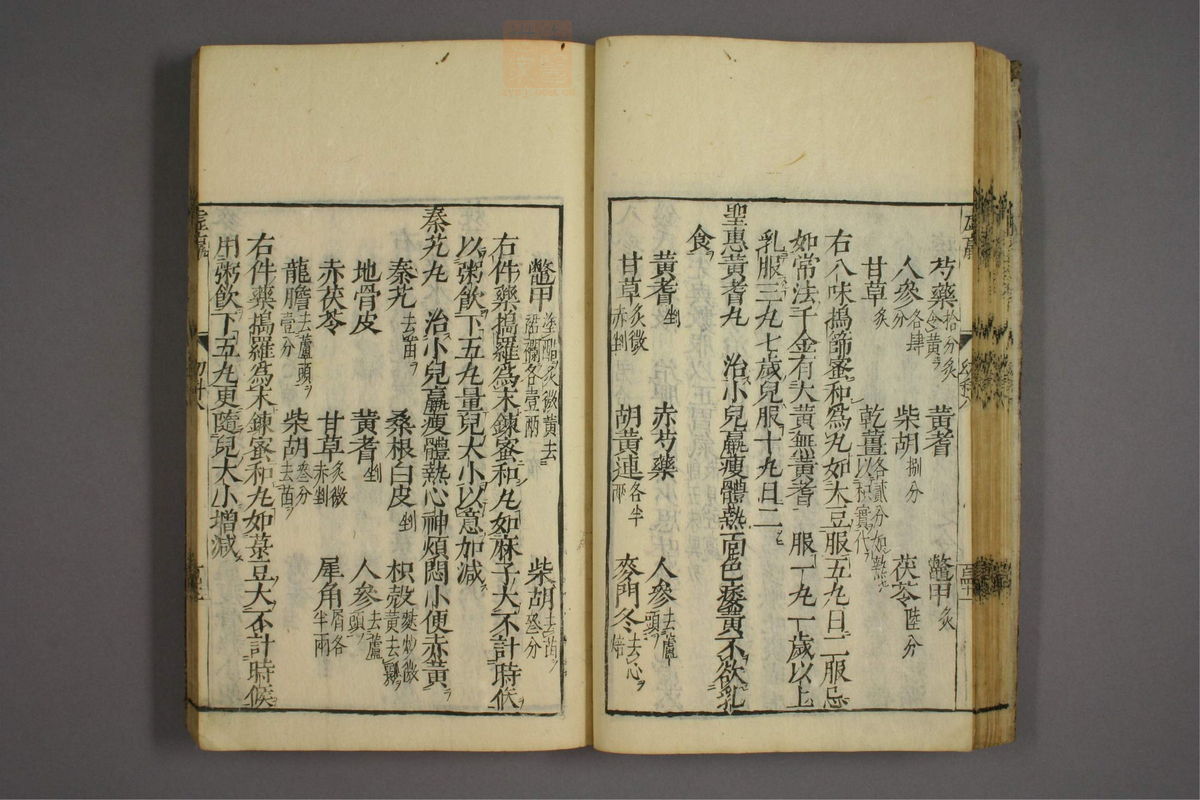 芍藥拾分炙令黃ヲ 黃耆 鼈甲炙
人參各肆分 柴胡捌分 茯苓陸分
甘草炙 乾薑各貳分如熱以枳實代
右八味搗篩蜜和爲丸如大豆服五丸日二服忌
如常法千金有大黃無黃耆一服一丸一歲以上
乳服三丸七歲兒服十丸日二
聖惠黃耆丸 治小兒羸瘦體熱面色痿黃不欲乳
食
黃耆剉 赤芍藥 人參去蘆頭ヲ
甘草炙微赤剉 胡黃連各半兩 麥門冬去心焙
鼈甲塗醋炙微黃去裙襴各壹兩 柴胡去苗ヲ叄分
右件藥搗羅爲末鍊蜜和丸如麻子大不計時候
以粥飲下五丸量兒大小以意加減
秦艽丸 治小兒羸瘦體熱心神煩悶小便赤黃
秦艽去苗ヲ 桑根白皮剉 枳殼麩炒微黃去瓤ヲ
地骨皮 黃耆剉 人參去蘆頭ヲ
赤茯苓 甘草炙微赤剉 犀角屑各半兩
龍膽去蘆頭ヲ壹分 柴胡去苗ヲ叄分
右件藥搗羅爲末鍊蜜和丸如菉豆大不計時候
用粥飲下五丸更隨兒大小增減
虛羸
幼科